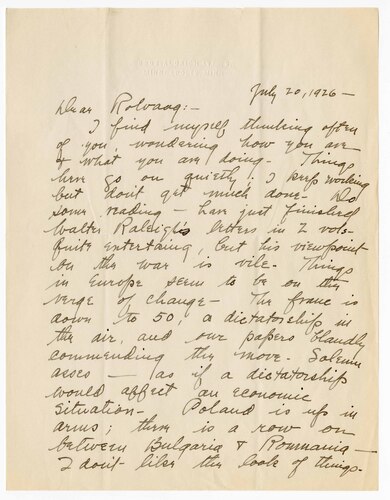 July 20, 1926 —
Dear Rolvaag:—
I find myself thinking often
of you, wondering how you are
& what you are doing. Things
here go on quietly. I keep working
but don't get much done. Do
some reading — have just finished
Walter Raleigh's letters in 2 vols.
Quite entertaining, but his viewpoint
on the war is vile. Things
in Europe seem to be on the
verge of change — The franc is
down to 50, a dictatorship in
the air, and our papers blandly
commending the move. Solemn
asses — as if a dictatorship
would affect an economic
situation. Poland is up in
arms; there is a row on
between Bulgaria & Roumania —
I don't like the look of things.